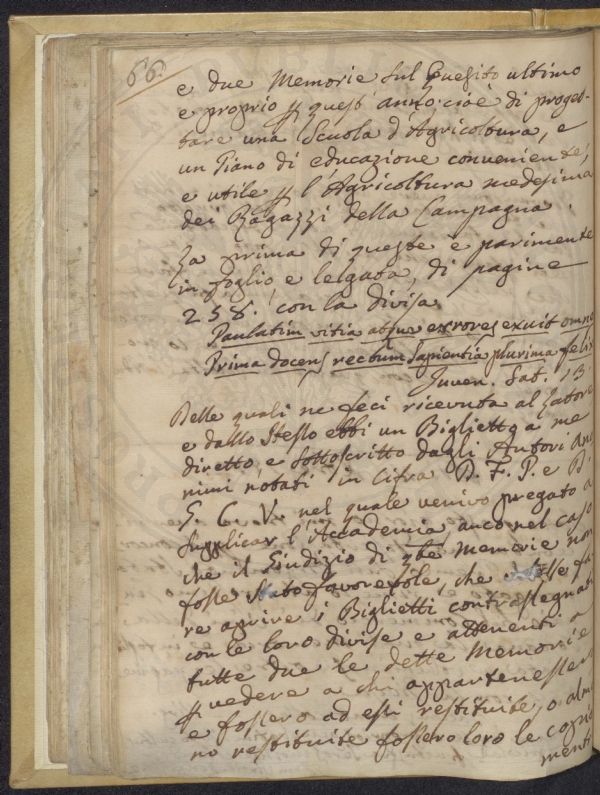 66.
e due Memorie sul Quesito ultimo
e proprio p quest' anno, cioè di proget-
tare una Scuola d'Agricoltura, e
un Piano di educazione conveniente,
e utile p l'Agricoltura medesima
dei Ragazzi della Campagna.
La prima di queste è parimente
in foglio e legata, di pagine
258. con la divisa
Paulatim vitia atque errores exuit omnes
Prima docens rectum Sapientia plurima felix
Juven. Sat. 13
Delle quali ne feci ricevuta al Latore
e dallo Stesso ebbi un Biglietto a me
diretto, e sottoscritto dagli Autori Ano
nimi notati in Cifra D. F. P. e D.
S. C. V. nel quale venivo pregato a
supplicar l'Accademia anco nel caso
che il Giudizio di tbe Memorie non
fosse stato favorevole, che fa
re aprire i Biglietti contrassegnati
con le loro divise e attenenti a
tutte due le dette Memorie
p vedere a chi appartenessero
e fossero ad essi restituite, o alme
no restituite fossero loro le copie
menti